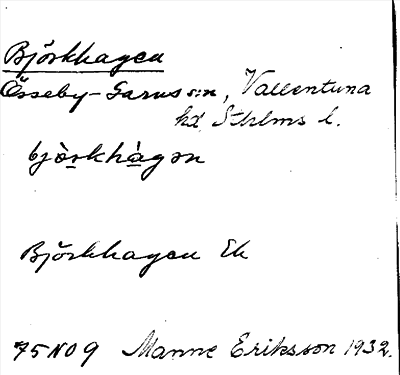 Björkhagen
Össeby-Garns sn, Vallentuna
hd, Sthlms l.
bjò̱rkhà̱gən
Björkhagen Ek
75 NO 9 Manne Eriksson 1932.